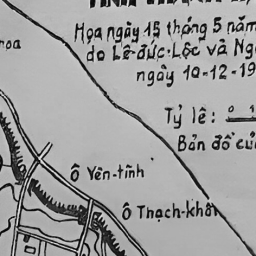 Họa ngày 15 tháng 5 năm
do Lê-đức-Lộc và Ng
ngày 10-12-19
Tỷ lệ: 0 1
Bản đồ củ
Ô Yên-tĩnh
Ô Thạch-khối